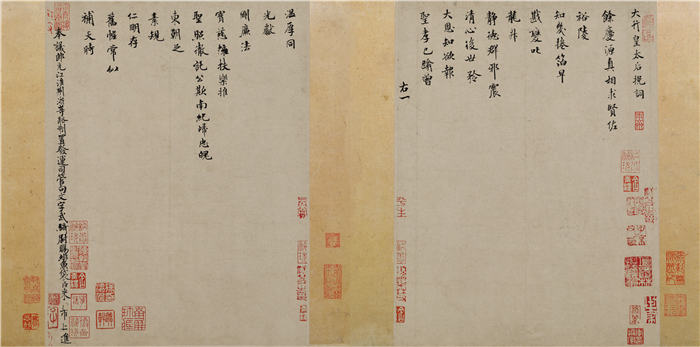 大行皇太后挽詞
餘慶源真相求賢佐
裕陵
知幾捲箔早
戡變叱
龍升
靜德群邪震
清心後世矜
大恩知欲報
聖孝已踰曾
右一
溫厚同
光獻
剛廉法
寶慈扶樂推
聖照撤託公欺南紀歸忠魄
東朝足
素規
仁明存
舊幄常似
補天時
奉議郎充江淮荊浙等路制置發運司管勾文字武騎尉賜緋魚袋臣米芾上進